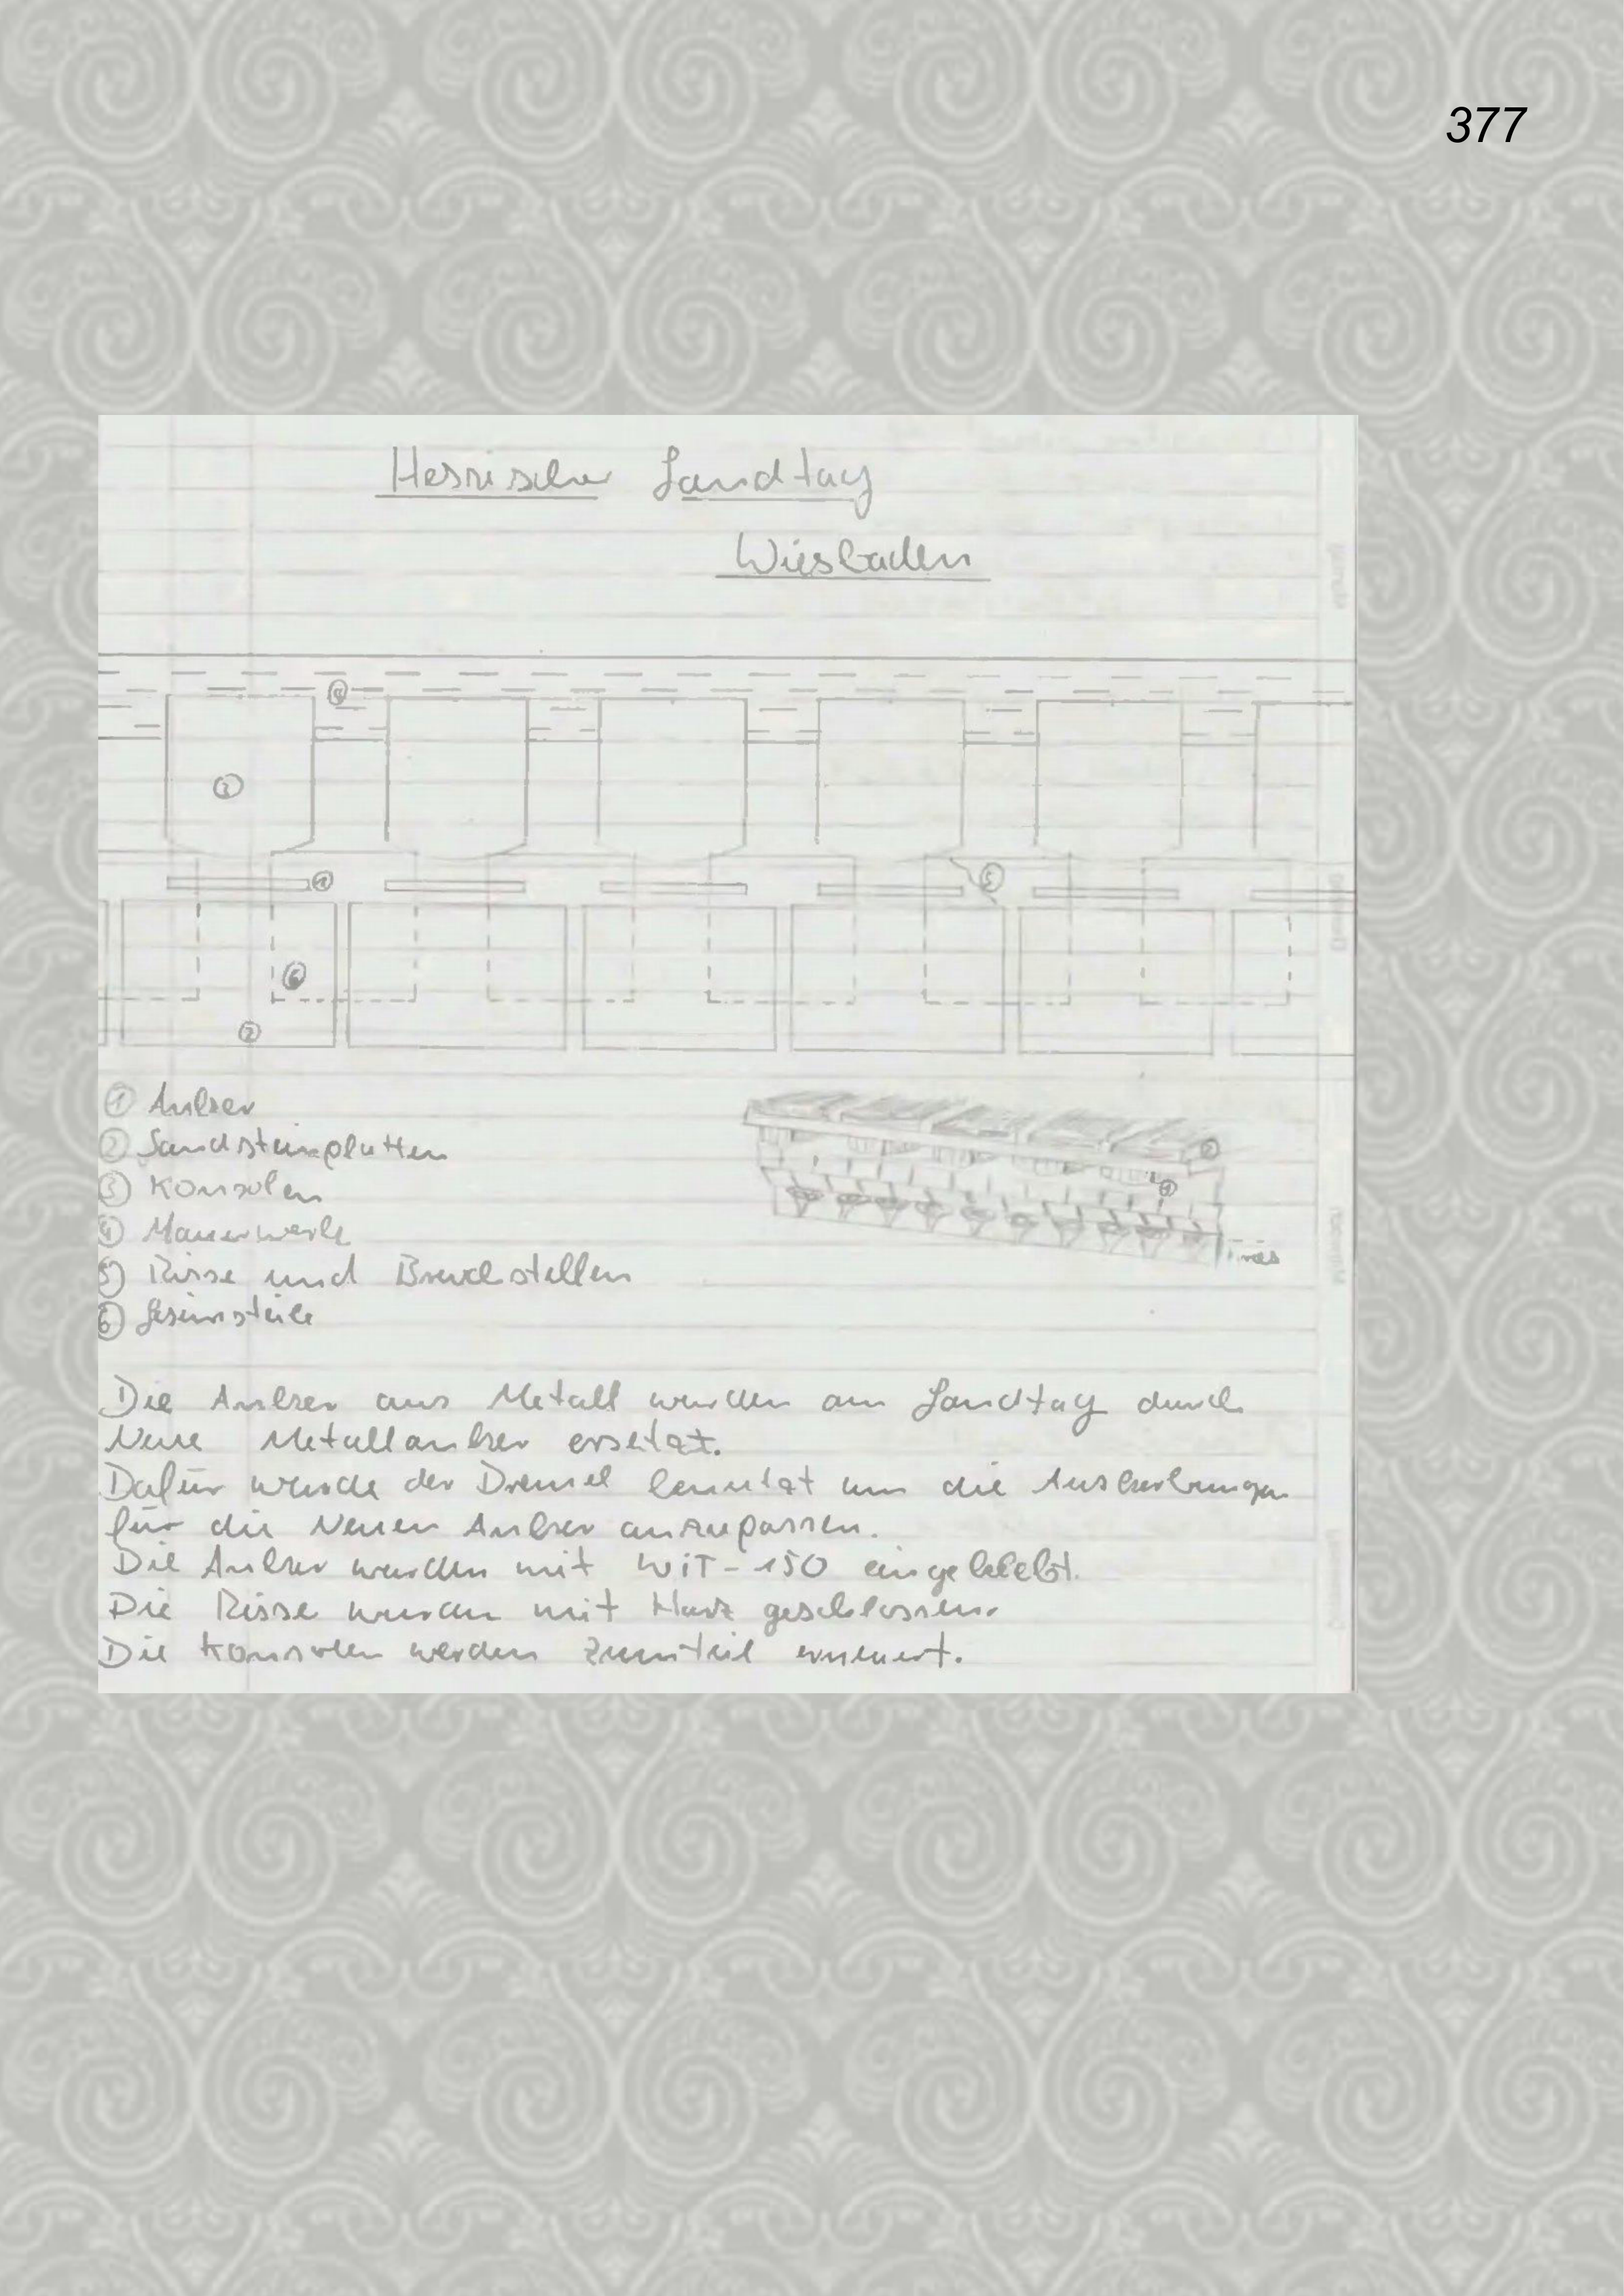 377
Hessischer Landtag
Wiesbaden
4
3
1
5
6
2
① Anker
② Sandsteinplatten
③ Konsolen
④ Mauerwerk
⑤ Risse und Bruchstellen
⑥ Gesimsteile
2
1
Die Anker aus Metall wurden am Landtag durch
Neue Metallanker ersetzt.
Dafür wurde der Dremel benutzt um die Auskerbungen
für die Neuen Anker anzupassen.
Die Anker wurden mit WiT-150 eingeklebt.
Die Risse wurden mit Harz geschlossen.
Die Konsolen werden Zumteil erneuert.